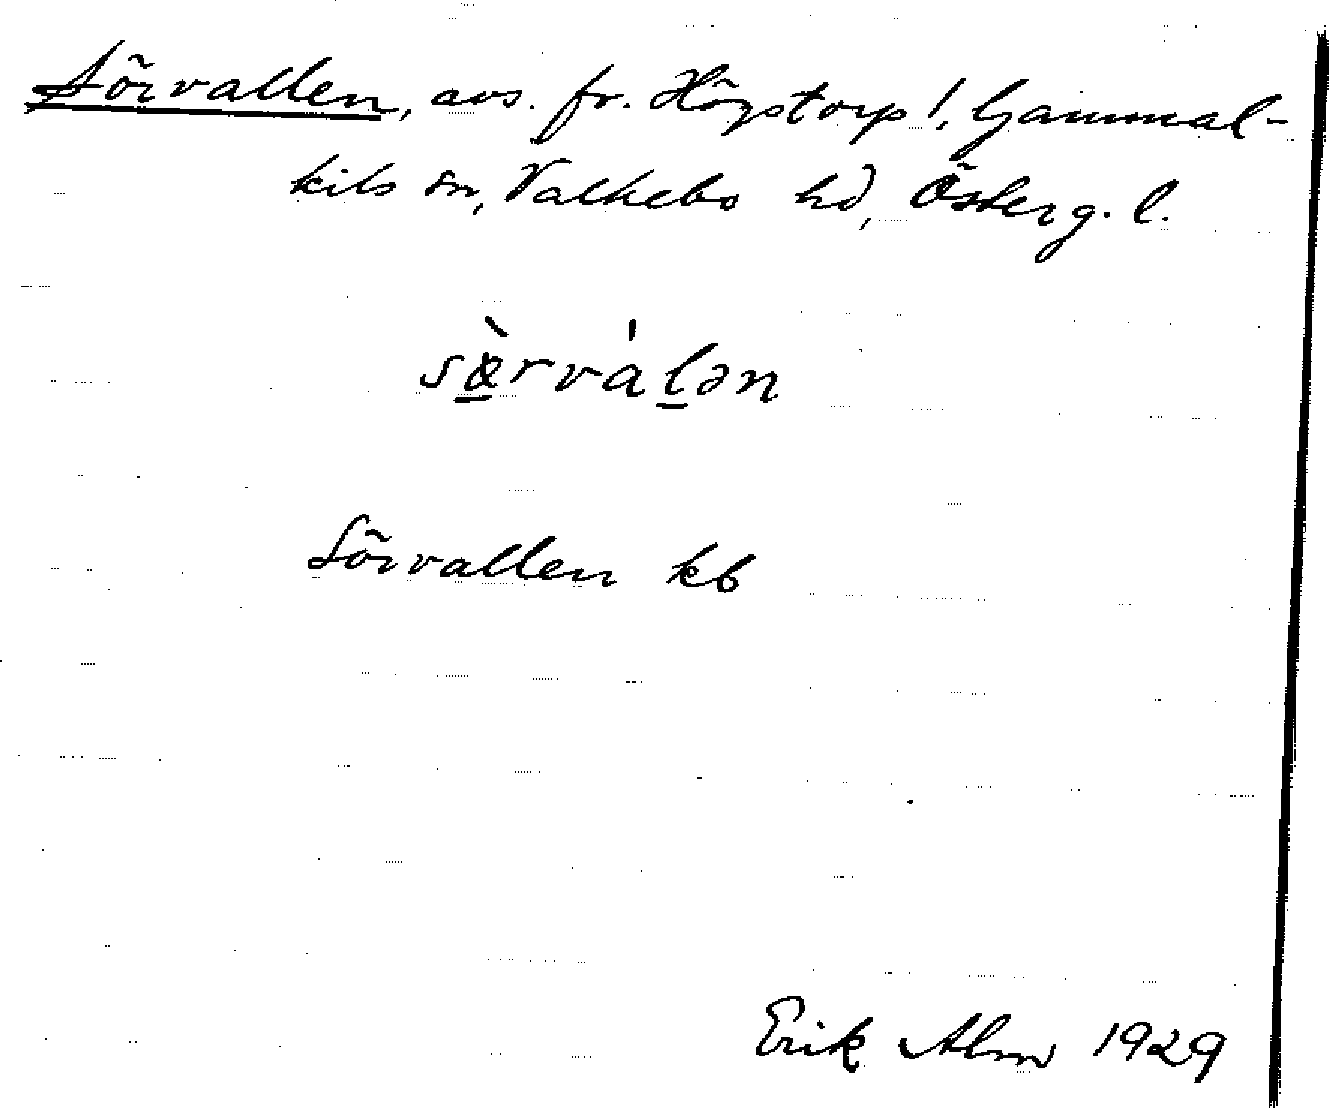 Sörvallen, avs. fr. Högstorp!, Gammal-
kils sn, Valkebo hd, Österg. l.
Sörvallen kb
Erik Alm 1929